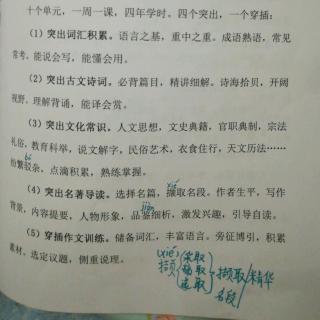 十个单元，一周一课，四年学时。四个突出，一个穿插：
（1）突出词汇积累。语言之基，重中之重。成语熟语，常见
常考。能说会写，能懂会用。
（2）突出古文诗词。必背篇目，精讲细解。诗海拾贝，开阔
视野。理解背诵，能译会赏。
（3）突出文化常识。人文思想，文史典籍，官职典制，宗法
礼俗，教育科举，说文解字，民俗艺术，衣食住行，天文历法……
bó
纷繁驳杂，点滴积累，熟练掌握。
（4）突出名著导读。选择名篇，撷取名段。作者生平，写作
xié
背景，内容提要，人物形象，品鉴细析，激发兴趣，引导自读。
jiàn
（5）穿插作文训练。储备词汇，丰富语言。旁征博引，积累
素材。选定议题，侧重说理。
(xié)
撷
采取
摘取
选取
撷取
精华
名段